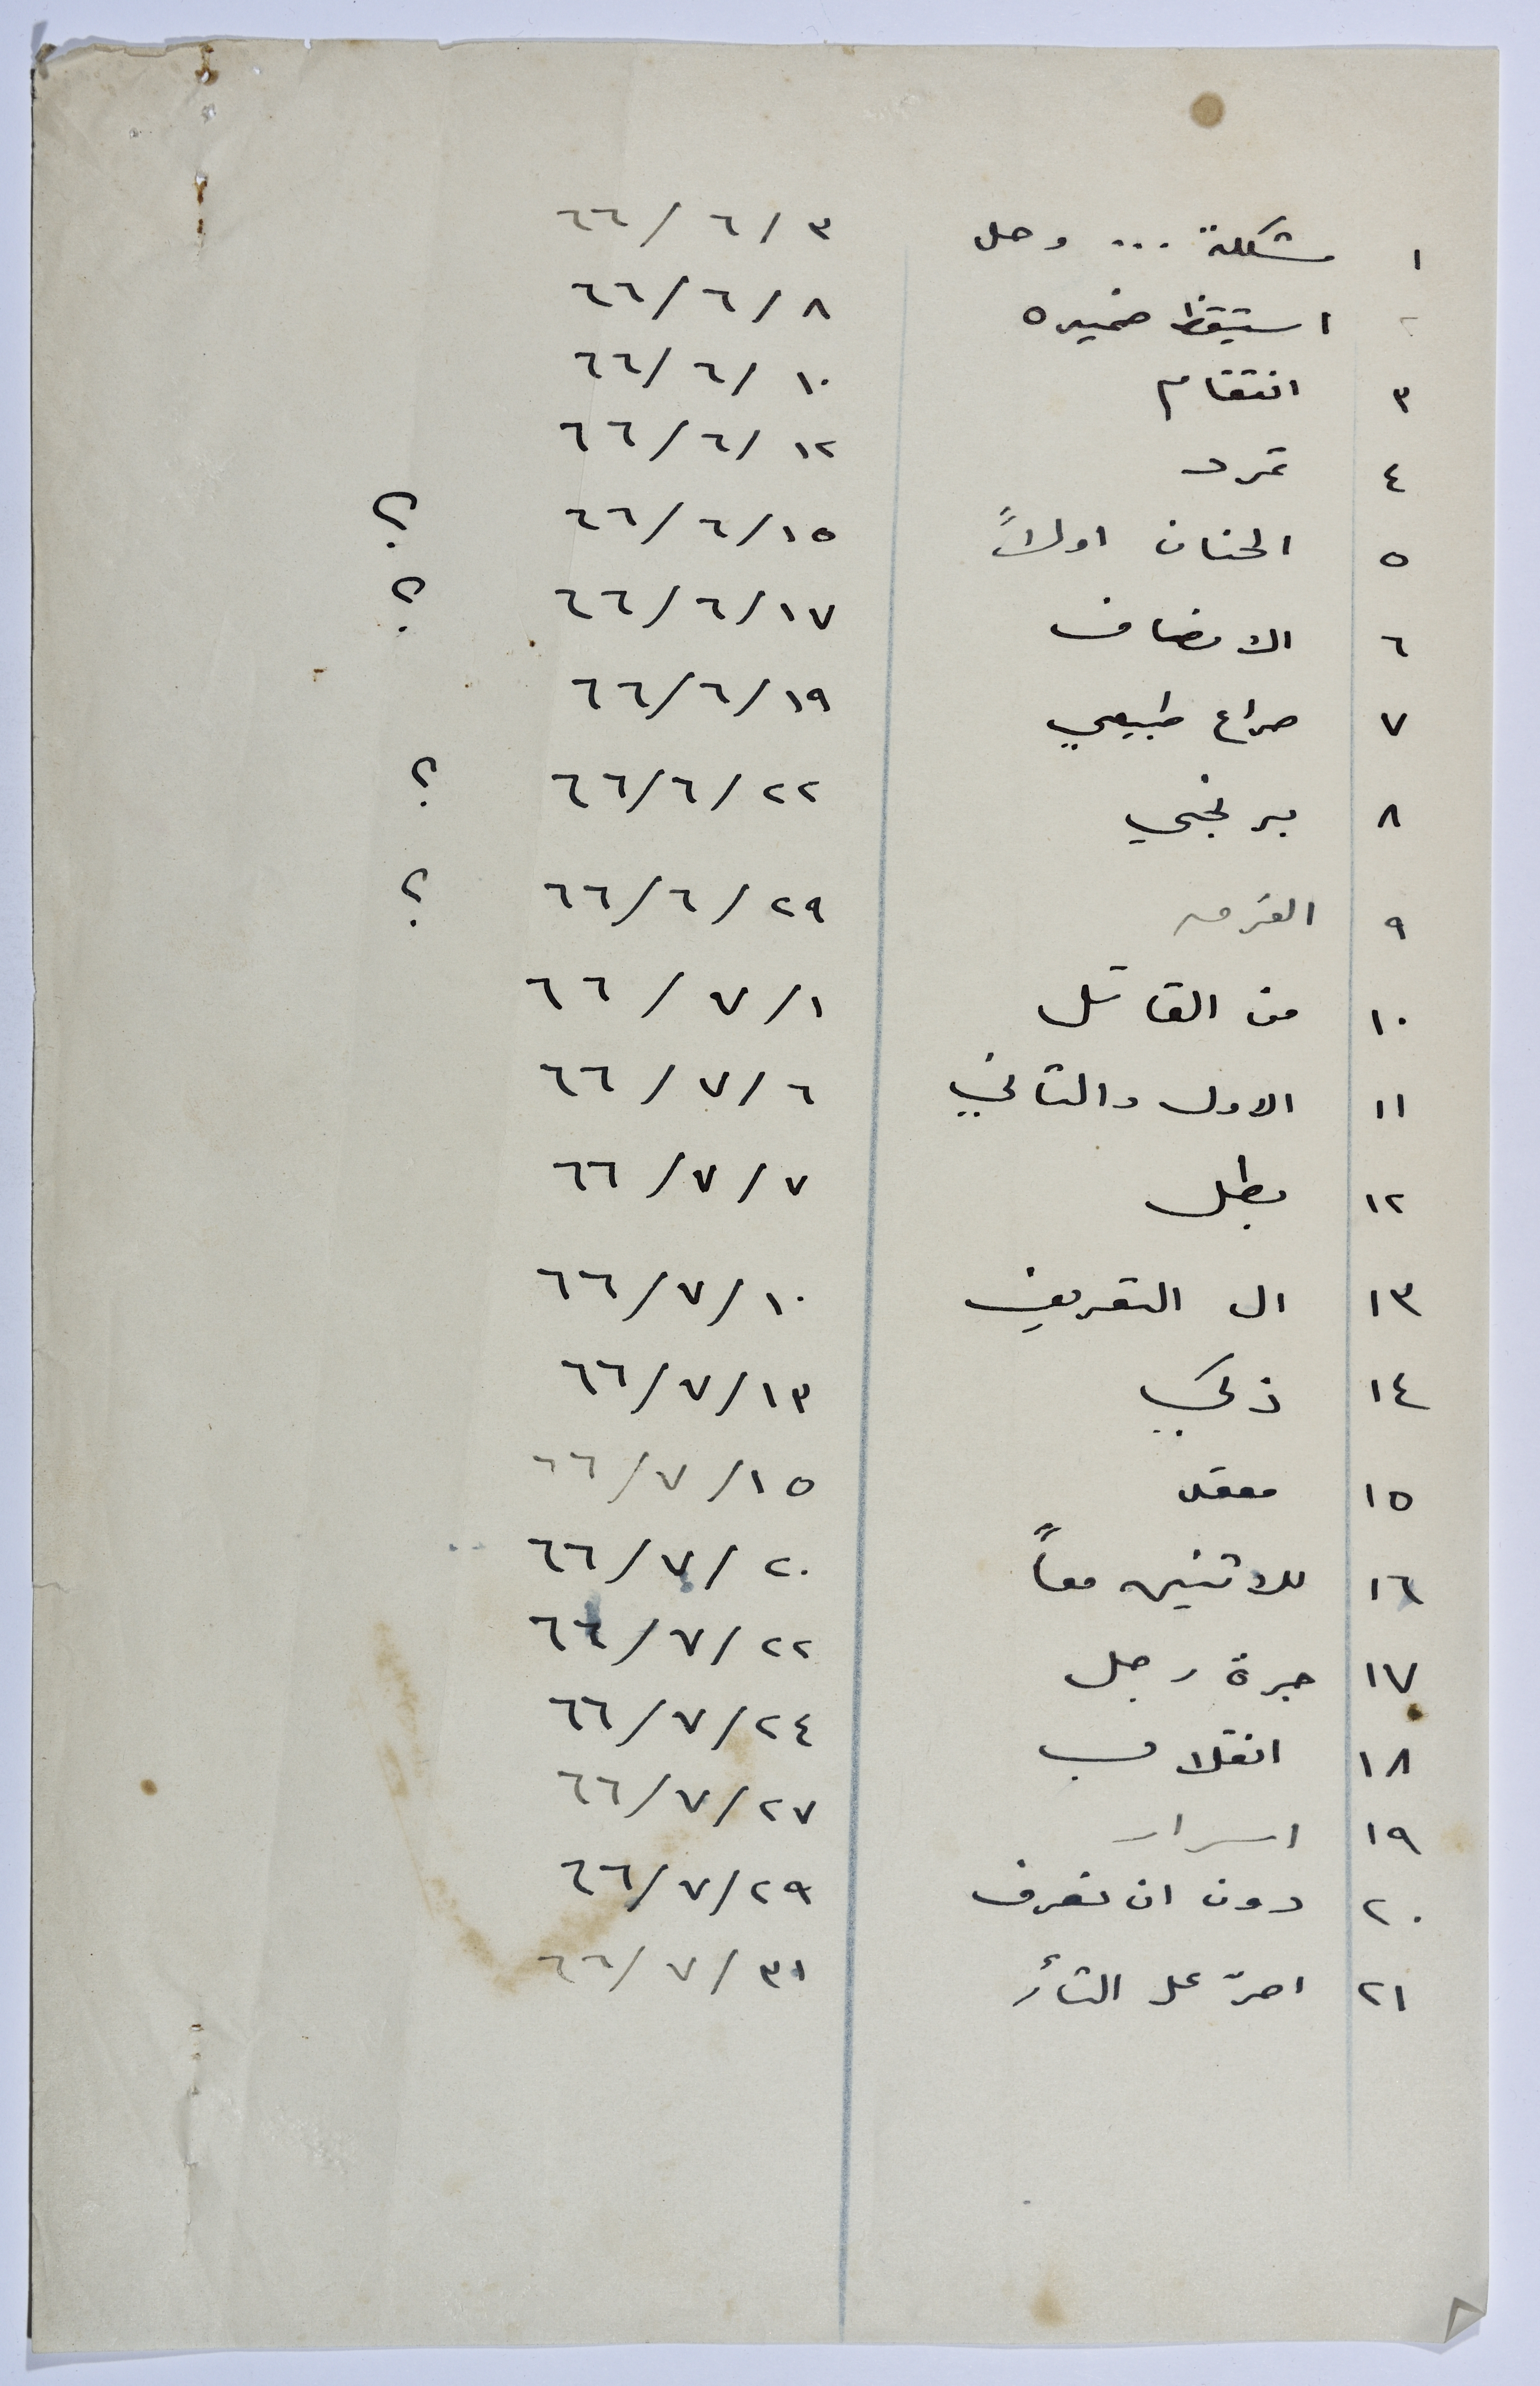 ١ مشكلة ... وحل ٣/٦/٦٦
٢ استيقظ ضميره ٨/٦/٦٦
٣ انتقام ١٠/٦/٦٦
٤ تمرد ١٢/٦/٦٦
٥ الحنان اولاً ١٥/٦/٦٦ ؟
٦ الانصاف ١٧/٦/٦٦ ؟
٧ صراع طبيعي ١٩/٦/٦٦
٨ ٢٢/٦/٦٦ ؟
٩ ٢٩/٦/٦٦ ؟
١٠ من القاتل ١/٧/٦٦
١١ الاول والثاني ٦/٧/٦٦
١٢ بطل ٧/٧/٦٦
١٣ ال التعريف ١٠/٧/٦٦
١٤ ذكي ١٣/٧/٦٦
١٥ معقد ١٥/٧/٦٦
١٦ للاثنين معاً ٢٠/٧/٦٦
١٧ رجل ٢٢/٧/٦٦
١٨ انقلاب ٢٤/٧/٦٦
١٩ اسرار ٢٧/٧/٦٦
٢٠ دون ان تعرف ٢٩/٧/٦٦
٢١ اصرّ على الثأر ٣١/٧/٦٦